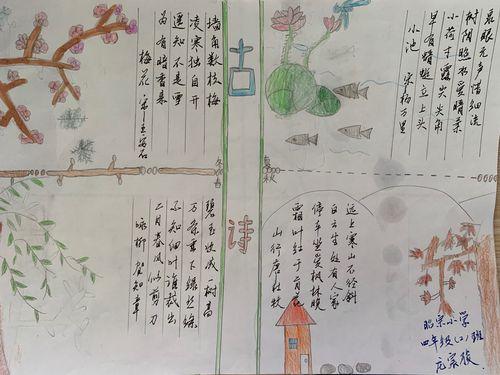 泉眼无声惜细流
树阴照水爱晴柔
小荷才露尖尖角
早有蜻蜓立上头
小池 宋杨万里
古诗
墙角数枝梅
凌寒独自开
遥知不是雪
为有暗香来
梅花 宋王安石
冬
春
夏
秋
远上寒山石径斜
白云生处有人家
停车坐爱枫林晚
霜叶红于二月花
山行唐杜牧
碧玉妆成一树高
万条垂下绿丝绦
不知细叶谁裁出
二月春风似剪刀
咏柳 贺知章
昭宗小学
四年级(2)班